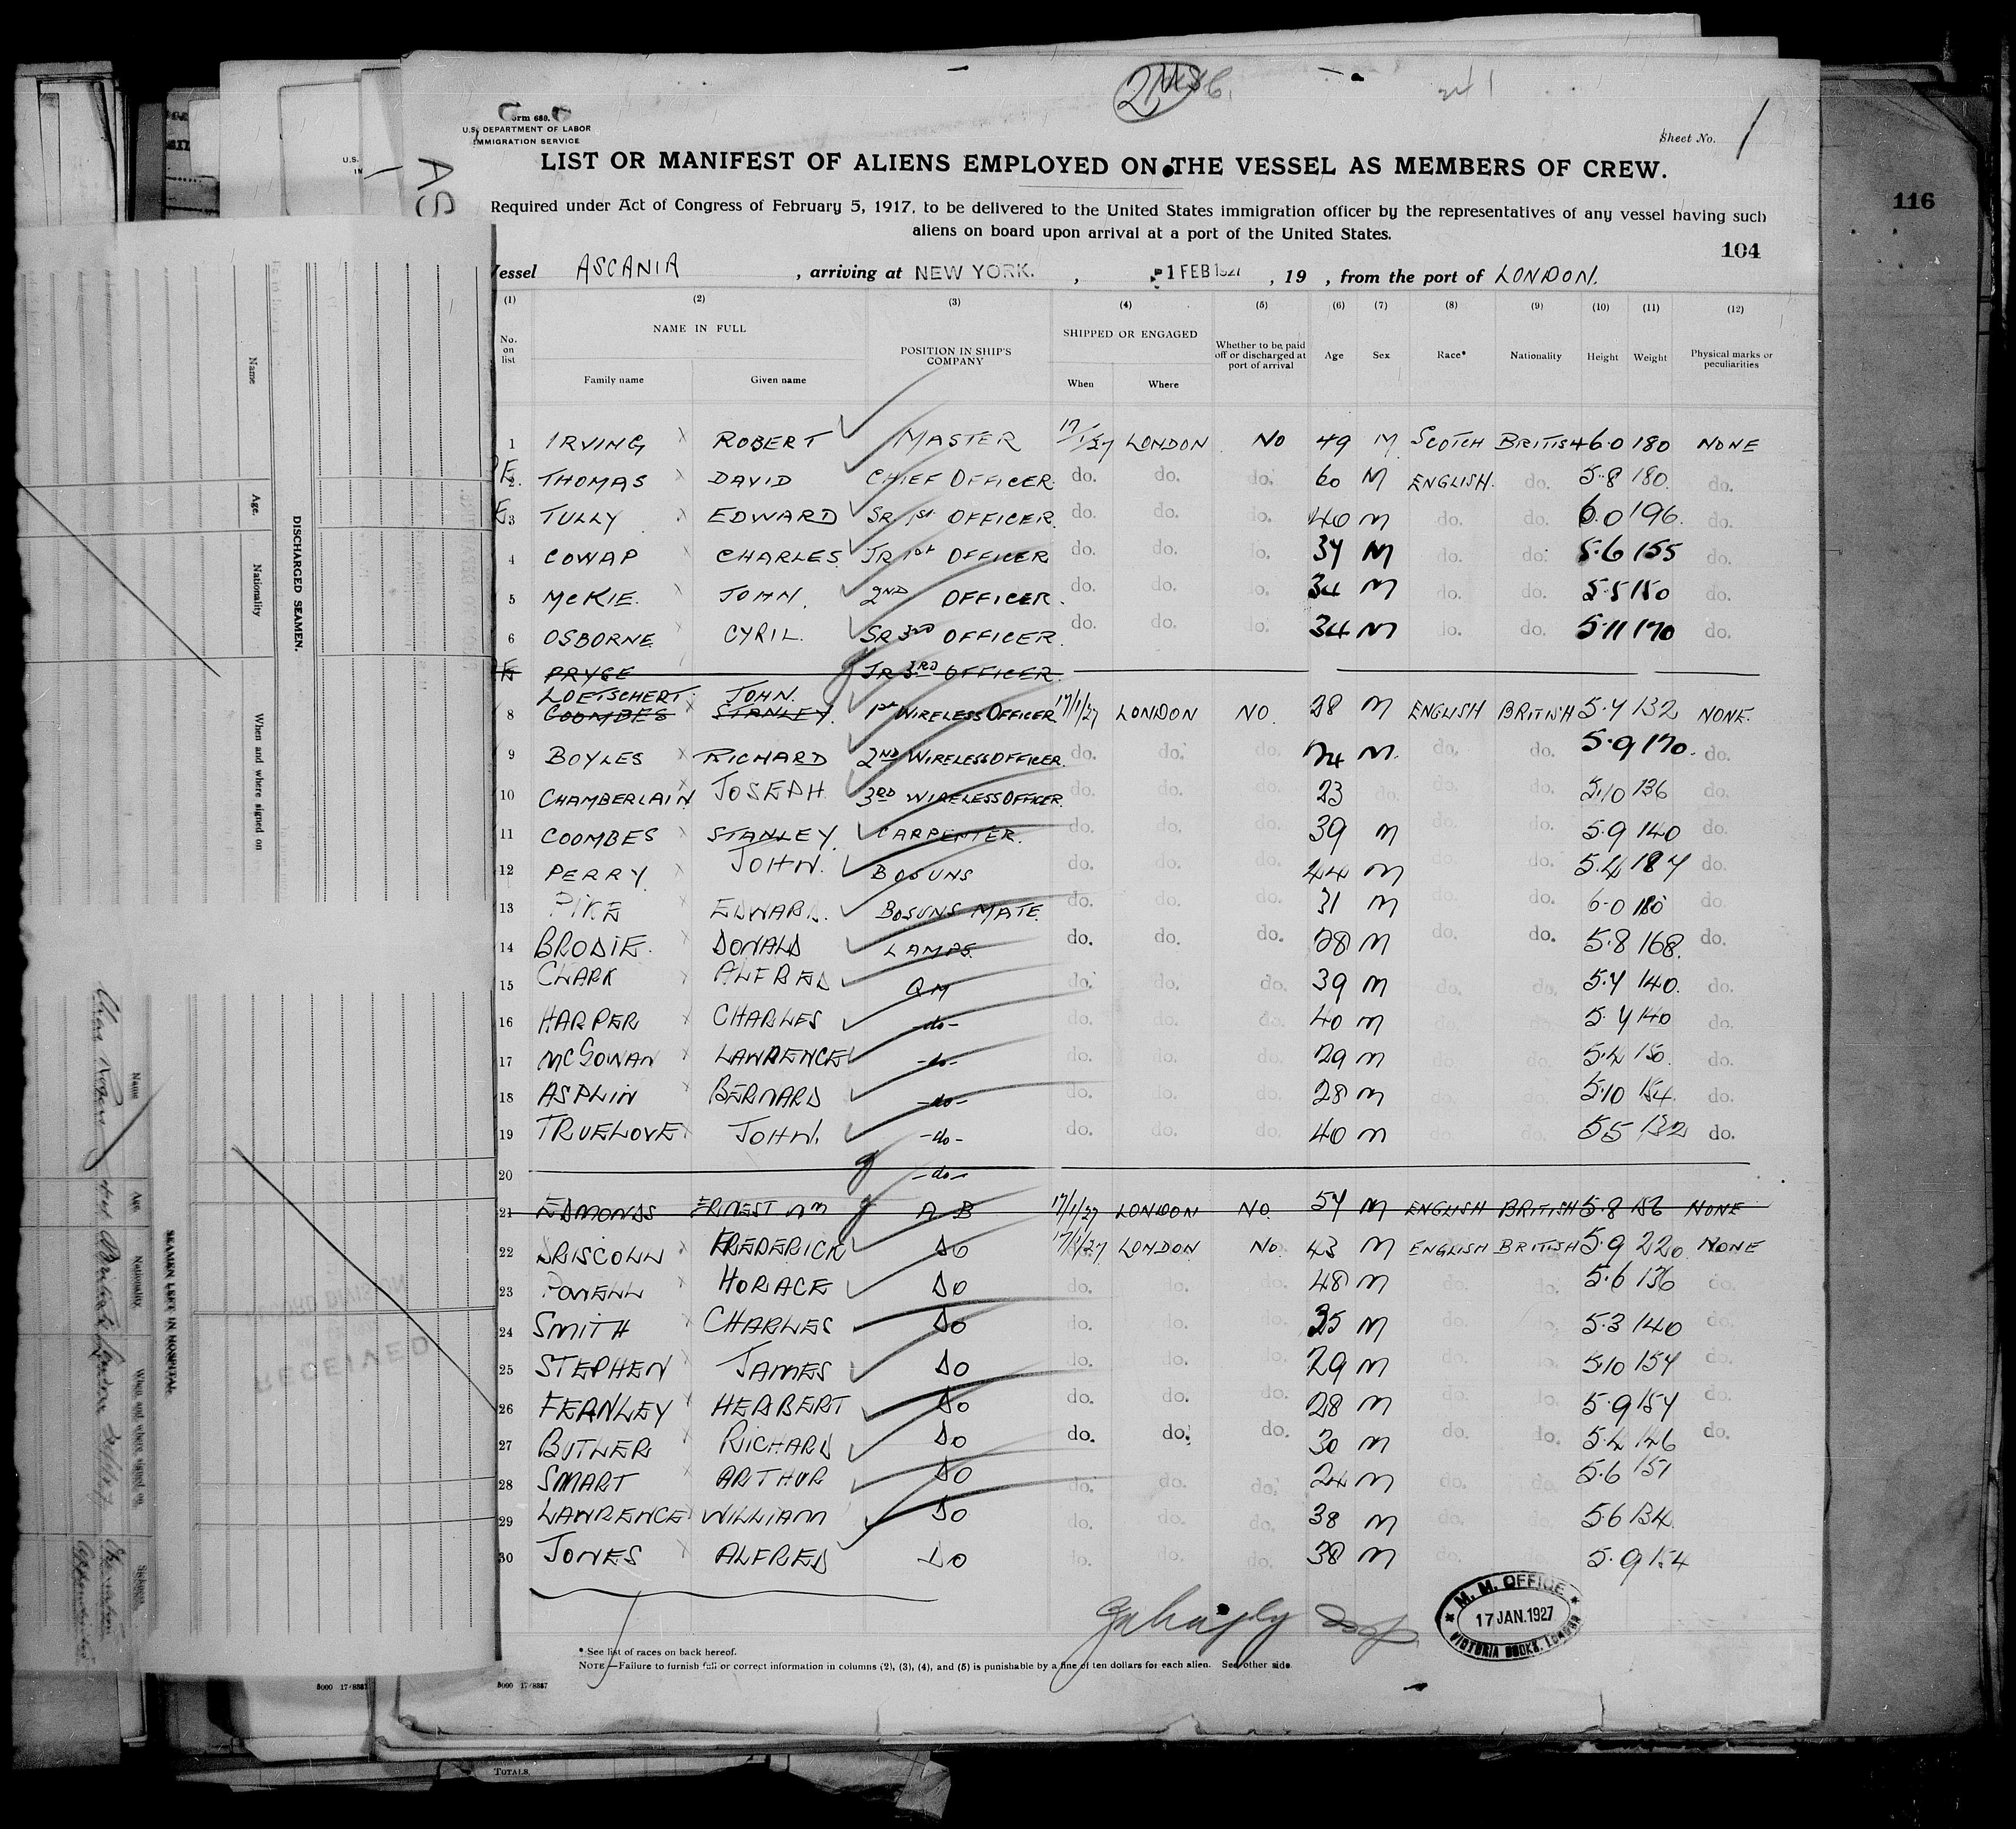 2
Form 680.
U.S. DEPARTMENT OF LABOR
IMMIGRATION SERVICE
Sheet No. 1
LIST OR MANIFEST OF ALIENS EMPLOYED ON THE VESSEL AS MEMBERS OF CREW.
Required under Act of Congress of February 5, 1917, to be delivered to the United States immigration officer by the representatives of any vessel having such
aliens on board upon arrival at a port of the United States.
116
104
Vessel ASCANIA , arriving at NEW YORK. , 1 FEB 1927 , 19 , from the port of LONDON.
(1) (2) (3) (4) (5) (6) (7) (8) (9) (10) (11) (12)
No. on list NAME IN FULL Family name Given name POSITION IN SHIP'S COMPANY SHIPPED OR ENGAGED When Where Whether to be paid off or discharged at port of arrival Age Sex Race* Nationality Height Weight Physical marks or peculiarities
1 IRVING ROBERT MASTER 17/1/27 LONDON NO 49 M SCOTCH BRITISH 6.0 180 NONE
2 THOMAS DAVID CHIEF OFFICER do. do. do. 60 M ENGLISH do. 5.8 180 do.
3 TULLY EDWARD SR 1st OFFICER do. do. do. 40 M do. do. 6.0 196 do.
4 COWAP CHARLES JR 1st OFFICER do. do. do. 37 M do. do. 5.6 155 do.
5 McKIE JOHN 2ND OFFICER do. do. do. 34 M do. do. 5.5 150 do.
6 OSBORNE CYRIL SR 3RD OFFICER do. do. do. 34 M do. do. 5.11 170 do.
PRYCE JR 3RD OFFICER
LOETSCHERT JOHN
8 COOMBES STANLEY 1st WIRELESS OFFICER 17/1/27 LONDON NO. 28 M ENGLISH BRITISH 5.7 132 NONE.
9 BOYLES RICHARD 2ND WIRELESS OFFICER do. do. do. 24 M do. do. 5.9 170 do.
10 CHAMBERLAIN JOSEPH 3RD WIRELESS OFFICER do. do. do. 23 do. do. do. 5.10 136 do.
11 COOMBES STANLEY CARPENTER do. do. do. 39 M do. do. 5.9 140 do.
12 PERRY JOHN BOSUNS do. do. do. 44 M do. 5.4 187 do.
13 PIKE EDWARD BOSUNS MATE do. do. do. 31 M do. do. 6.0 180 do
14 BRODIE DONALD LAMPS do. do. do. 28 M do. do. 5.8 168 do.
15 CLARK ALFRED QM do. do. do. 39 M do. do. 5.7 140 do.
16 HARPER CHARLES -do- do. do. do. 40 M do. do. 5.7 140 do.
17 McGOWAN LAWRENCE -do- do. do. do. 29 M do. do. 5.4 150 do.
18 ASPLIN BERNARD -do- do. do. do. 28 M do. do. 5.10 154 do.
19 TRUELOVE JOHN -do- do. do. do. 40 M do. do. 5.5 132 do.
20 -do-
21 EDMONDS ERNEST Wm A B 17/1/27 LONDON NO. 57 M ENGLISH BRITISH 5.8 156 NONE
22 DRISCOLL FREDERICK DO 17/1/27 LONDON NO 43 M ENGLISH BRITISH 5.9 220 NONE
23 POWELL HORACE DO do. do. do. 48 M do. do. 5.6 136 do.
24 SMITH CHARLES DO do. do. do. 35 M do. do. 5.3 140 do.
25 STEPHEN JAMES DO do. do. do. 29 M do. do. 5.10 157 do.
26 FEARNLEY HERBERT DO do. do. do. 28 M do. do. 5.9 157 do.
27 BUTLER RICHARD DO do. do. do. 30 M do. do. 5.4 146 do.
28 SMART ARTHUR DO do. do. do. 24 M do. do. 5.6 151
29 LAWRENCE WILLIAM DO do. do. do. 38 M do. do. 5.6 134
30 JONES ALFRED DO do. do. do. 38 M do. do. 5.9 154
M. M. OFFICE
17 JAN. 1927
VICTORIA DOCKS, LONDON
* See list of races on back hereof.
NOTE.—Failure to furnish full or correct information in columns (2), (3), (4), and (5) is punishable by a fine of ten dollars for each alien. See other side.
5000 17/8337
5000 17/8337
TOTALS,
AS
U.S.
DISCHARGED SEAMEN.
Name Age. Nationality When and where signed on
SEAMEN LEFT IN HOSPITAL.
Name Age. Nationality. When and where signed on Sickness
RECORD DIVISION
RECEIVED